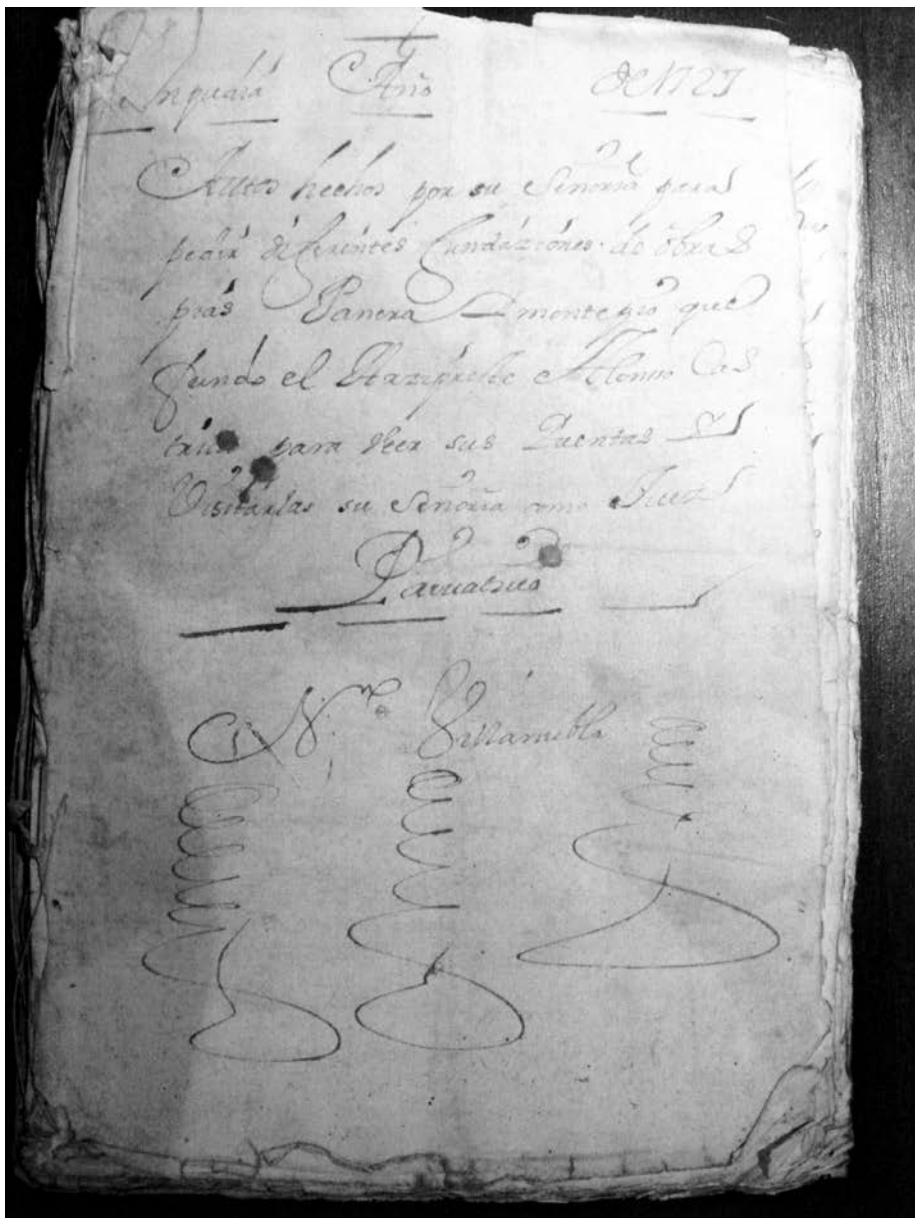 Año de 1727
Autos hechos por su Señoria para
pedir diferentes fundaziones de obras
pias Panera y monte pio que
fundo el Harzipreste Alonso Cas
para veer sus Quentas y
Visitarlas su Señoria como Juez
Nro. Villanubla